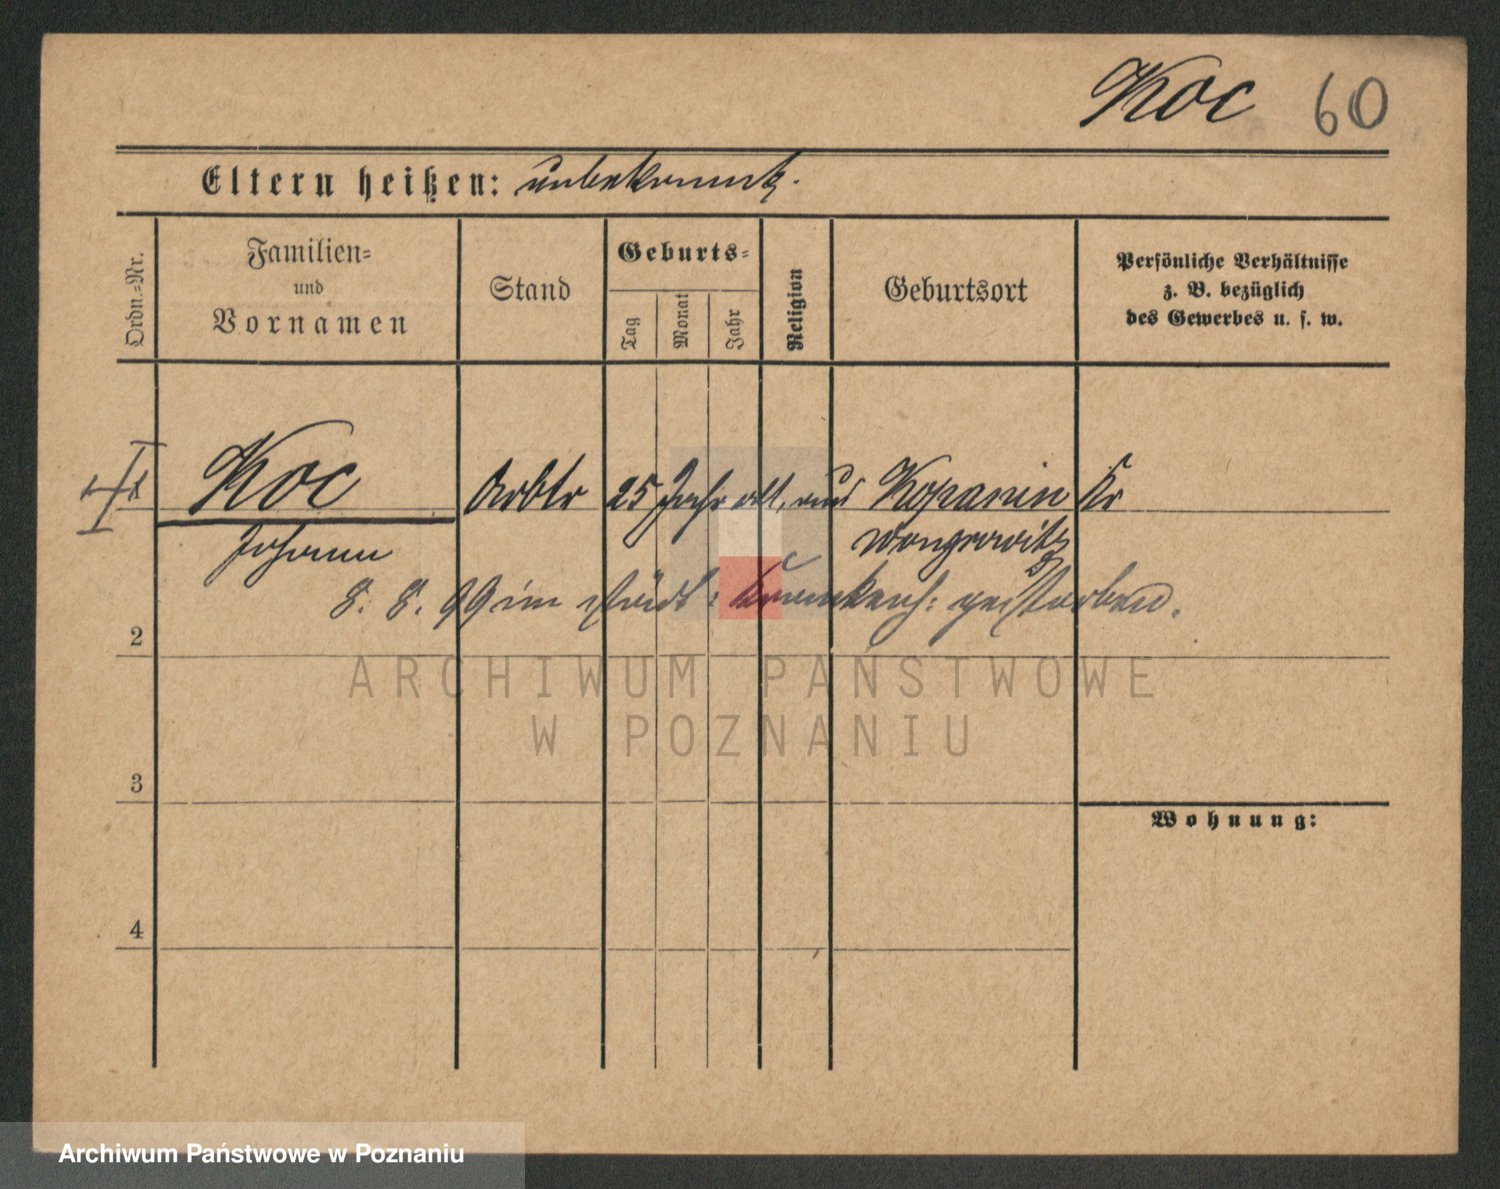 Koc 60
Eltern heißen: unbekannt.
Ordn.-Nr.
Familien-
und
Vornamen
Stand
Geburts-
Tag
Monat
Jahr
Religion
Geburtsort
Persönliche Verhältnisse
z. B. bezüglich
des Gewerbes u. s. w.
Koc Arbtr 25 Jahr alt, aus Kopanin Kr
Johann Wongrowitz
8. 8. 99 im städt: Krankenh: gestorben.
2
ARCHIWUM PAŃSTWOWE
W POZNANIU
3
Wohnung:
4
Archiwum Państwowe w Poznaniu